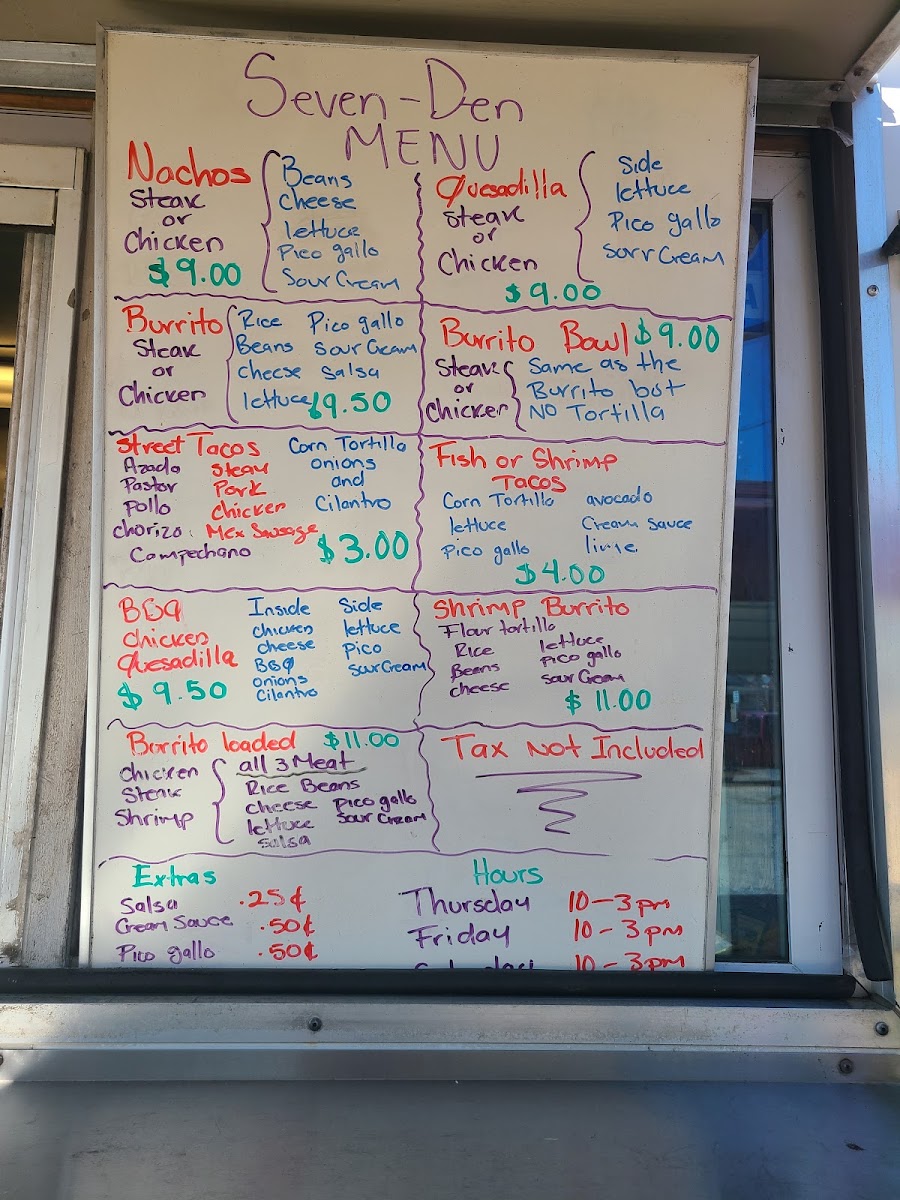 Seven-Den
MENU
Nachos
Steak
or
Chicken
$9.00
Beans
cheese
lettuce
Pico gallo
Sour Cream
Quesadilla
Steak
or
Chicken
$9.00
Side
lettuce
Pico gallo
Sour Cream
Burrito
Steak
or
Chicken
Rice Pico gallo
Beans Sour Cream
cheese Salsa
lettuce $9.50
Burrito Bowl $9.00
Steak
or
Chicken
Same as the
Burrito but
NO Tortilla
Street Tacos
Azada Steak
Pastor Pork
Pollo chicken
chorizo: Mex Sausage
Campechano
Corn Tortilla
onions
and
Cilantro
$3.00
Fish or Shrimp
Tacos
Corn Tortilla avocado
lettuce Cream Sauce
Pico gallo lime
$4.00
BBQ
Chicken
Quesadilla
$9.50
Inside
chicken
cheese
BBQ
onions
Cilantro
Side
lettuce
Pico
Sour Cream
Shrimp Burrito
Flour tortilla
Rice lettuce
Beans Pico gallo
cheese Sour Cream
$11.00
Burrito loaded $11.00
Chicken
Steak
Shrimp
all 3 Meat
Rice Beans
cheese Pico gallo
lettuce Sour Cream
Salsa
Tax Not Included
Extras
Salsa .25¢
Cream Sauce .50¢
Pico gallo .50¢
Hours
Thursday 10-3pm
Friday 10-3pm
10-3pm